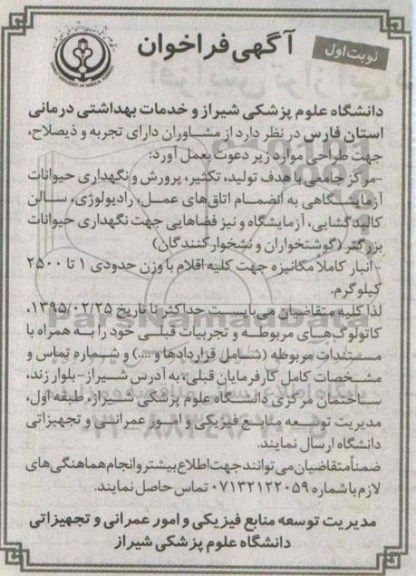 نوبت اول
آگهی فراخوان
دانشگاه علوم پزشکی شیراز و خدمات بهداشتی درمانی
استان فارس در نظر دارد از مشاوران دارای تجربه و ذیصلاح،
جهت طراحی موارد زیر دعوت بعمل آورد:
-مرکز جامعی با هدف تولید، تکثیر، پرورش و نگهداری حیوانات
آزمایشگاهی به انضمام اتاق‌های عمل، رادیولوژی، سالن
کالبدگشایی، آزمایشگاه و نیز فضاهایی جهت نگهداری حیوانات
بزرگتر (گوشتخواران و نشخوارکنندگان)
- انبار کاملاً مکانیزه جهت کلیه اقلام با وزن حدودی ۱ تا ۲۵۰۰
کیلوگرم.
لذا کلیه متقاضیان می‌بایست حداکثر تا تاریخ ۱۳۹۵/۰۲/۲۵،
کاتولوگ‌های مربوطه و تجربیات قبلی خود را به همراه با
مستندات مربوطه (شامل قراردادها و ...) و شماره تماس و
مشخصات کامل کارفرمایان قبلی، به آدرس شیراز-بلوار زند،
ساختمان مرکزی دانشگاه علوم پزشکی شیراز، طبقه اول،
مدیریت توسعه منابع فیزیکی و امور عمرانی و تجهیزاتی
دانشگاه ارسال نمایند.
ضمناً متقاضیان می‌توانند جهت اطلاع بیشتر و انجام هماهنگی‌های
لازم با شماره ۰۷۱۳۲۱۲۲۰۵۹ تماس حاصل نمایند.
مدیریت توسعه منابع فیزیکی و امور عمرانی و تجهیزاتی
دانشگاه علوم پزشکی شیراز